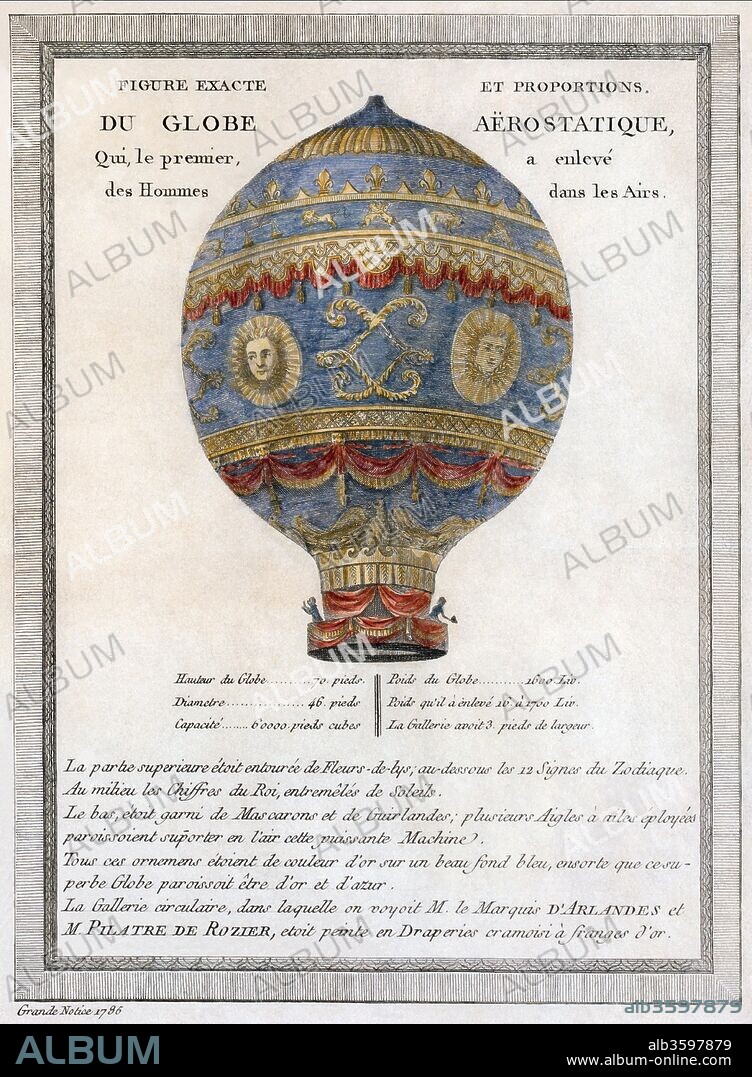 FIGURE EXACTE ET PROPORTIONS.
DU GLOBE AËROSTATIQUE,
Qui, le premier, a enlevé
des Hommes dans les Airs.
Hauteur du Globe..........70. pieds.
Diametre.................46. pieds
Capacité........60000. pieds cubes
Poids du Globe..........1600 Liv.
Poids qu'il à enlevé 16. à 1700 Liv.
La Gallerie avoit 3. pieds de largeur.
La partie superieure étoit entourée de Fleurs-de-lys; au-dessous les 12 Signes du Zodiaque.
Au milieu les Chiffres du Roi, entremêlés de Soleils.
Le bas, etoit garni de Mascarons et de Guirlandes; plusieurs Aigles à ailes éployées
paroissoient suporter en l'air cette puissante Machine.
Tous ces ornemens etoient de couleur d'or sur un beau fond bleu, ensorte que ce su-
perbe Globe paroissoit être d'or et d'azur.
La Gallerie circulaire, dans laquelle on voyoit M. le Marquis D'ARLANDES et
M. PILATRE DE ROZIER, etoit peinte en Draperies cramoisi à franges d'or.
Grande Notice 1786
alb3597879
ALBUM
alb3597879
www.album-online.com